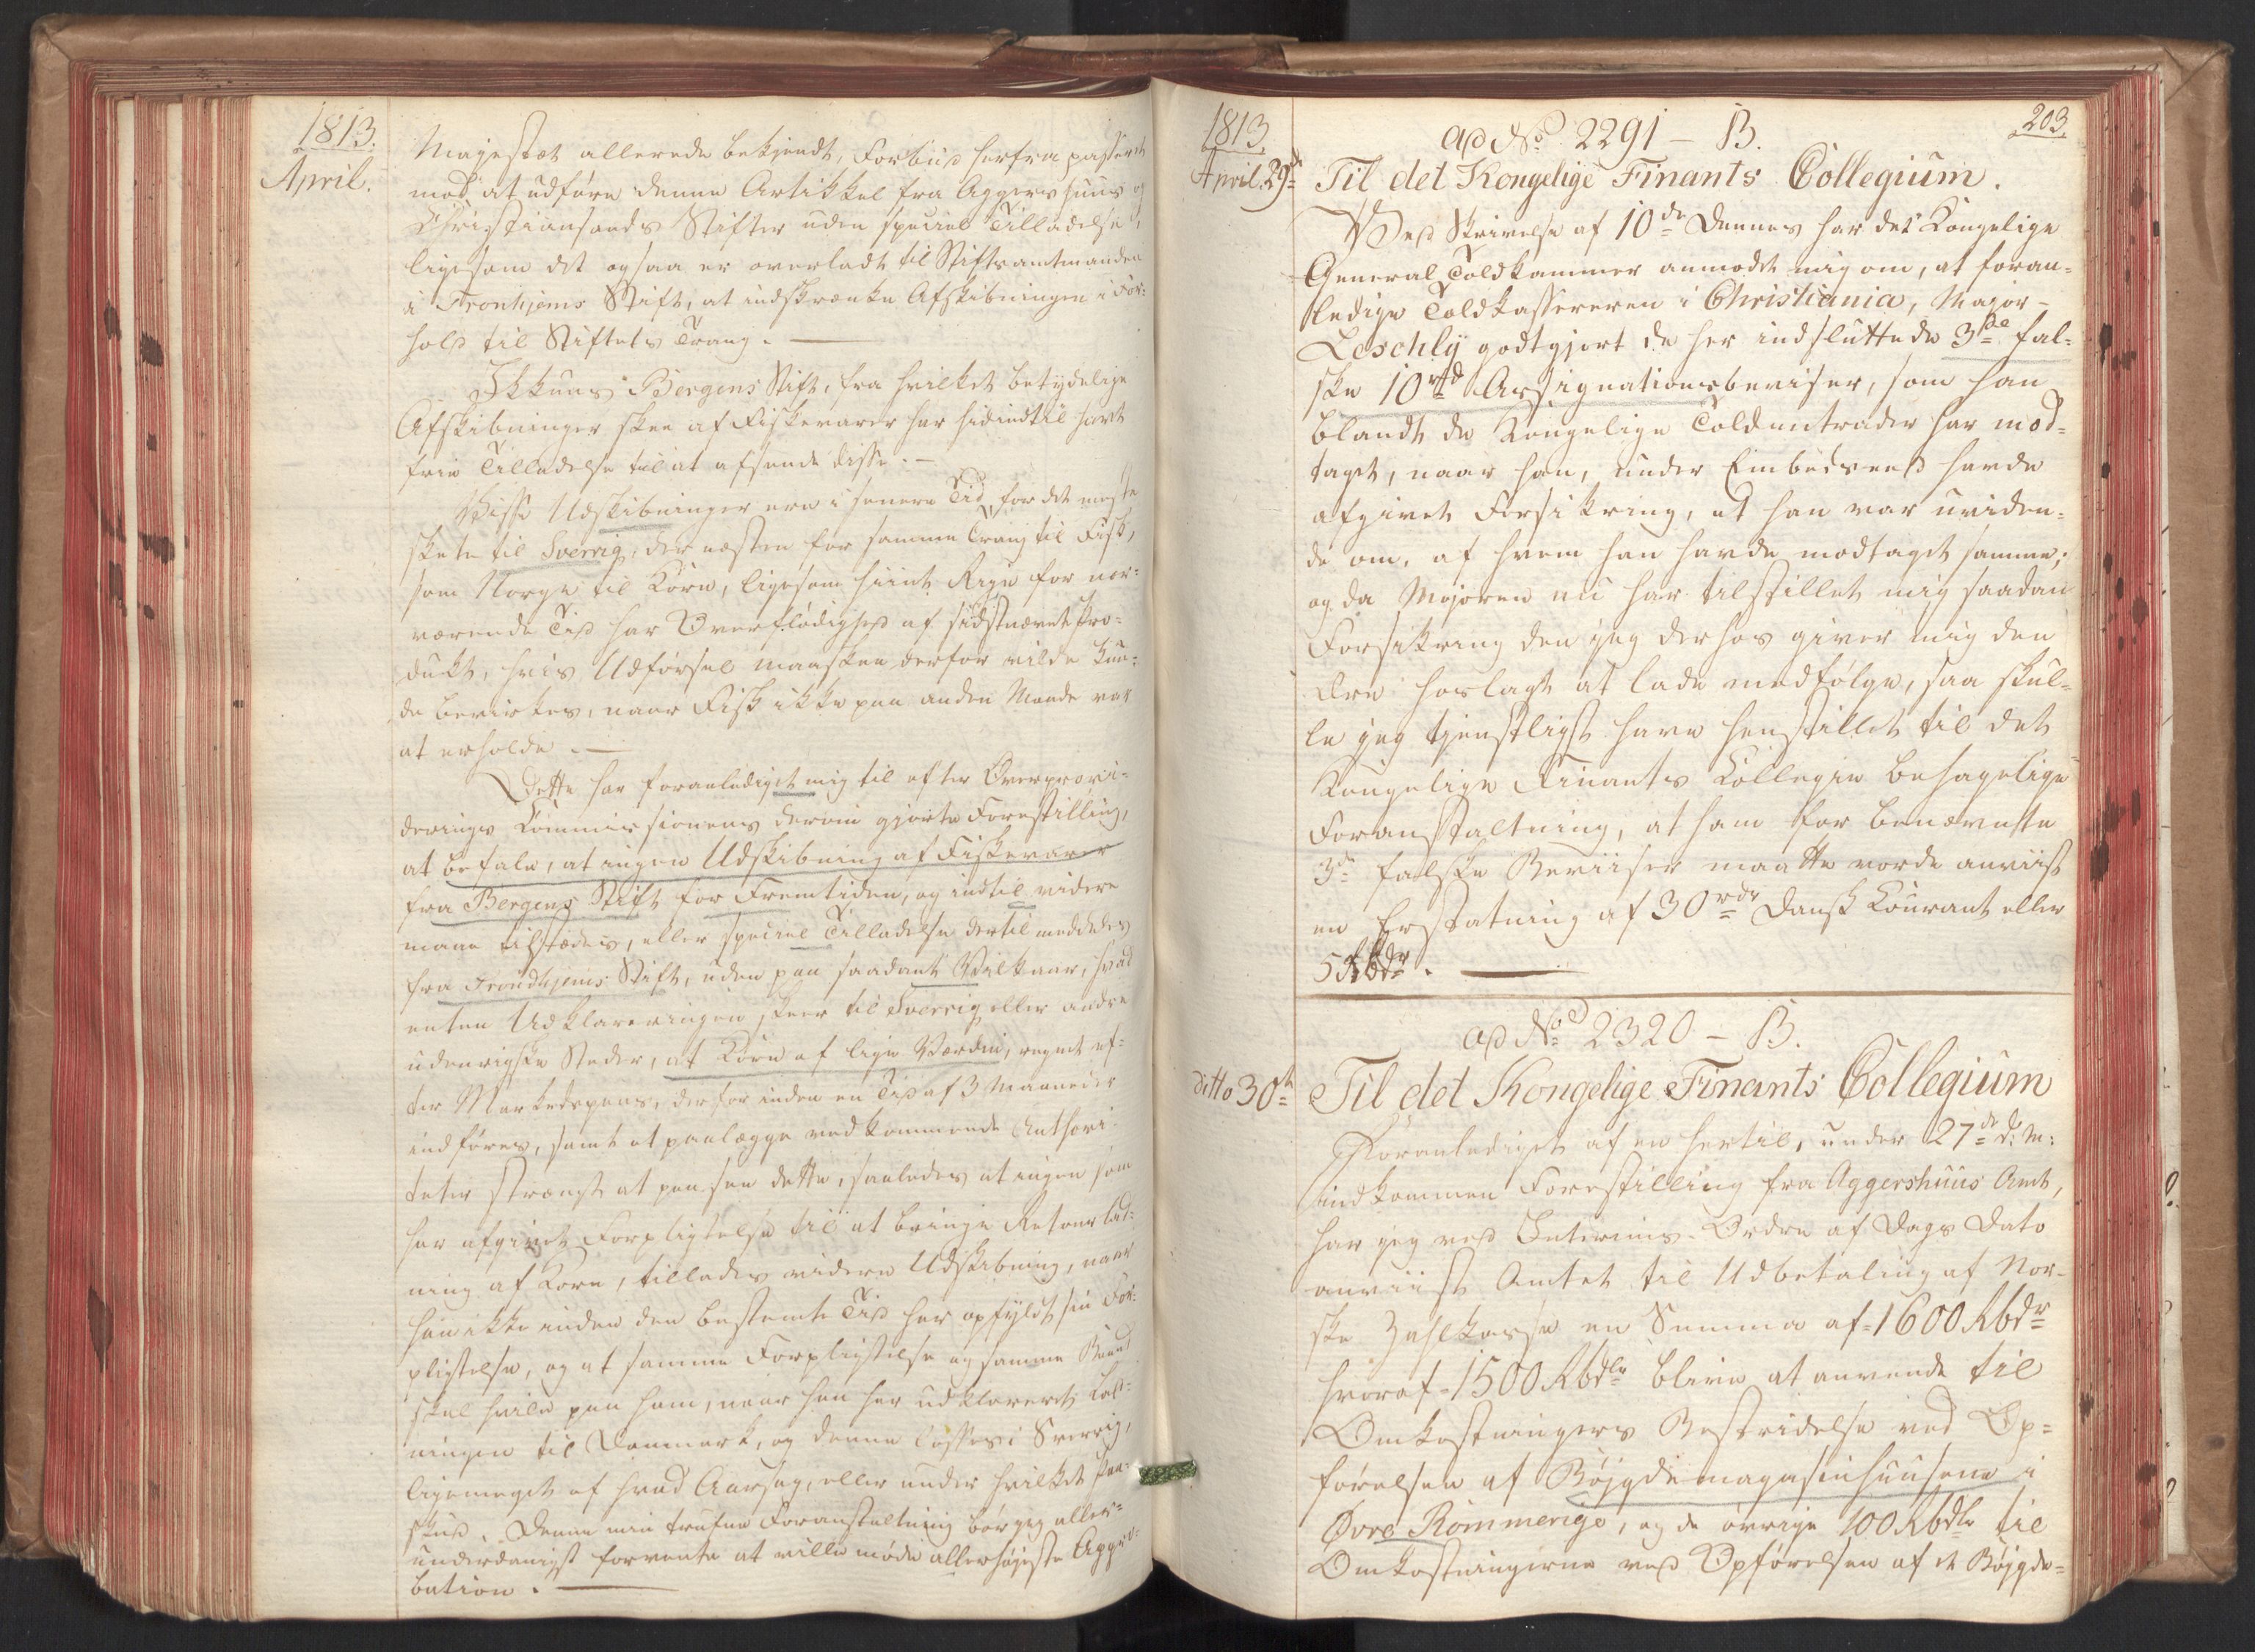 1813.
April.
Majestæt allerede bekjendt, Forbud herfra passeret
mod at udføre denne Artikkel fra Aggershuus og
Christiansands Stifter uden speciel Tilladelse,
ligesom det ogsaa er overladt til Stiftsamtmanden
i Tronhjems Stift, at indskrænke Afskibningen i For-
hold til Stiftets Trang. —
Ikkuns Bergens Stift, fra hvilket betydelige
Afskibninger skee af Fiskevarer har hidindtil havt
frie Tilladelse til at afsende disse. —
Disse Udskibninger ere i senere Tid for det meste
skete til Sverrig, der næsten har samme Trang til Fisk,
som Norge til Korn, ligesom hiint Rige for nær-
værende Tid har Overflødighed af sidstnævnte Pro-
dukt, hvis Udførsel maaskee derfor vilde kun-
de bevirkes, naar Fisk ikke paa anden Maade var
at erholde. —
Dette har foranlediget mig til efter Overprovi-
derings Kommissionens derom gjorte Forestilling,
at befale, at ingen Udskibning af Fiskevarer
fra Bergens Stift for Fremtiden, og indtil videre
maae tilstædes, eller speciel Tilladelse dertil meddeles
fra Trondhjems Stift, uden paa saadant Vilkaar, hvad
enten Udklareringen skeer til Sverrig eller andre
udenrigske Steder, at Korn af lige Værdie, regnet ef-
ter Markedspriis, derfor inden en Tid af 3 Maaneder
indføres, samt at paalægge vedkommende Authori-
teter strængt at paasee dette, saaledes at ingen som
har afgivet Forpligtelse til at bringe Retour lad-
ning af Korn, tillades videre Udskibning, naar
han ikke inden den bestemte Tid har opfyldt sin For-
pligtelse, og at samme Forpligtelse og samme Baand
skal hvile paa ham, naar han har udklareret Lad-
ningen til Danmark, og denne losses i Sverrig,
ligemeget af hvad Aarsag, eller under hvilket Paa-
skud. Denne min trufne Foranstaltning bør jeg aller-
underdanigst forvente at ville møde allerhøjeste Appro-
bation. —
203.
1813.
April. 29de
ad No 2291 – B.
Til det Kongelige Finants Collegium.
Ved Skrivelse af 10de dennes har det Kongelige
General Toldkammer anmodet mig om, at foran-
ledige Toldkassereren i Christiania, Major
Leschly godtgjort de her indsluttede 3de fal-
ske 10rd Assignationsbeviser, som han
blandt de Kongelige Toldintrader har mod-
taget, naar han, under Embedseed havde
afgivet Forsikring, at han var uviden-
de om, af hvem han havde modtaget samme;
og da Majoren nu har tilstillet mig saadan
Forsikring den jeg derhos giver mig den
Ære hoslagt at lade medfølge, saa skul-
le jeg tjenstligst have henstillet til det
Kongelige Finants Kollegie behagelige
Foranstaltning, at ham for benævnte
3de falske Beviiser maatte vorde anviist
en Erstatning af 30rdr Dansk Courant eller
5 Rbdr. —
ad No 2320 – B.
ditto 30te
Til det Kongelige Finants Collegium
Foranlediget af en hertil, under 27de d: M:
indkommen Forestilling fra Aggershuus Amt,
har jeg ved Interims-Ordre af Dags Dato
anviist Amtet til Udbetaling af Nor-
ske Zahlkasse en Summa af 1600 Rbdr
hvoraf 1500 Rbdlr blive at anvende til
Omkostningers Bestridelse ved Op-
førelsen af Bøjgdemagasinhuusene i
Øvre Rommerige, og de øvrige 100 Rbdlr til
Omkostningerne ved Opførelsen af et Bøjgde-